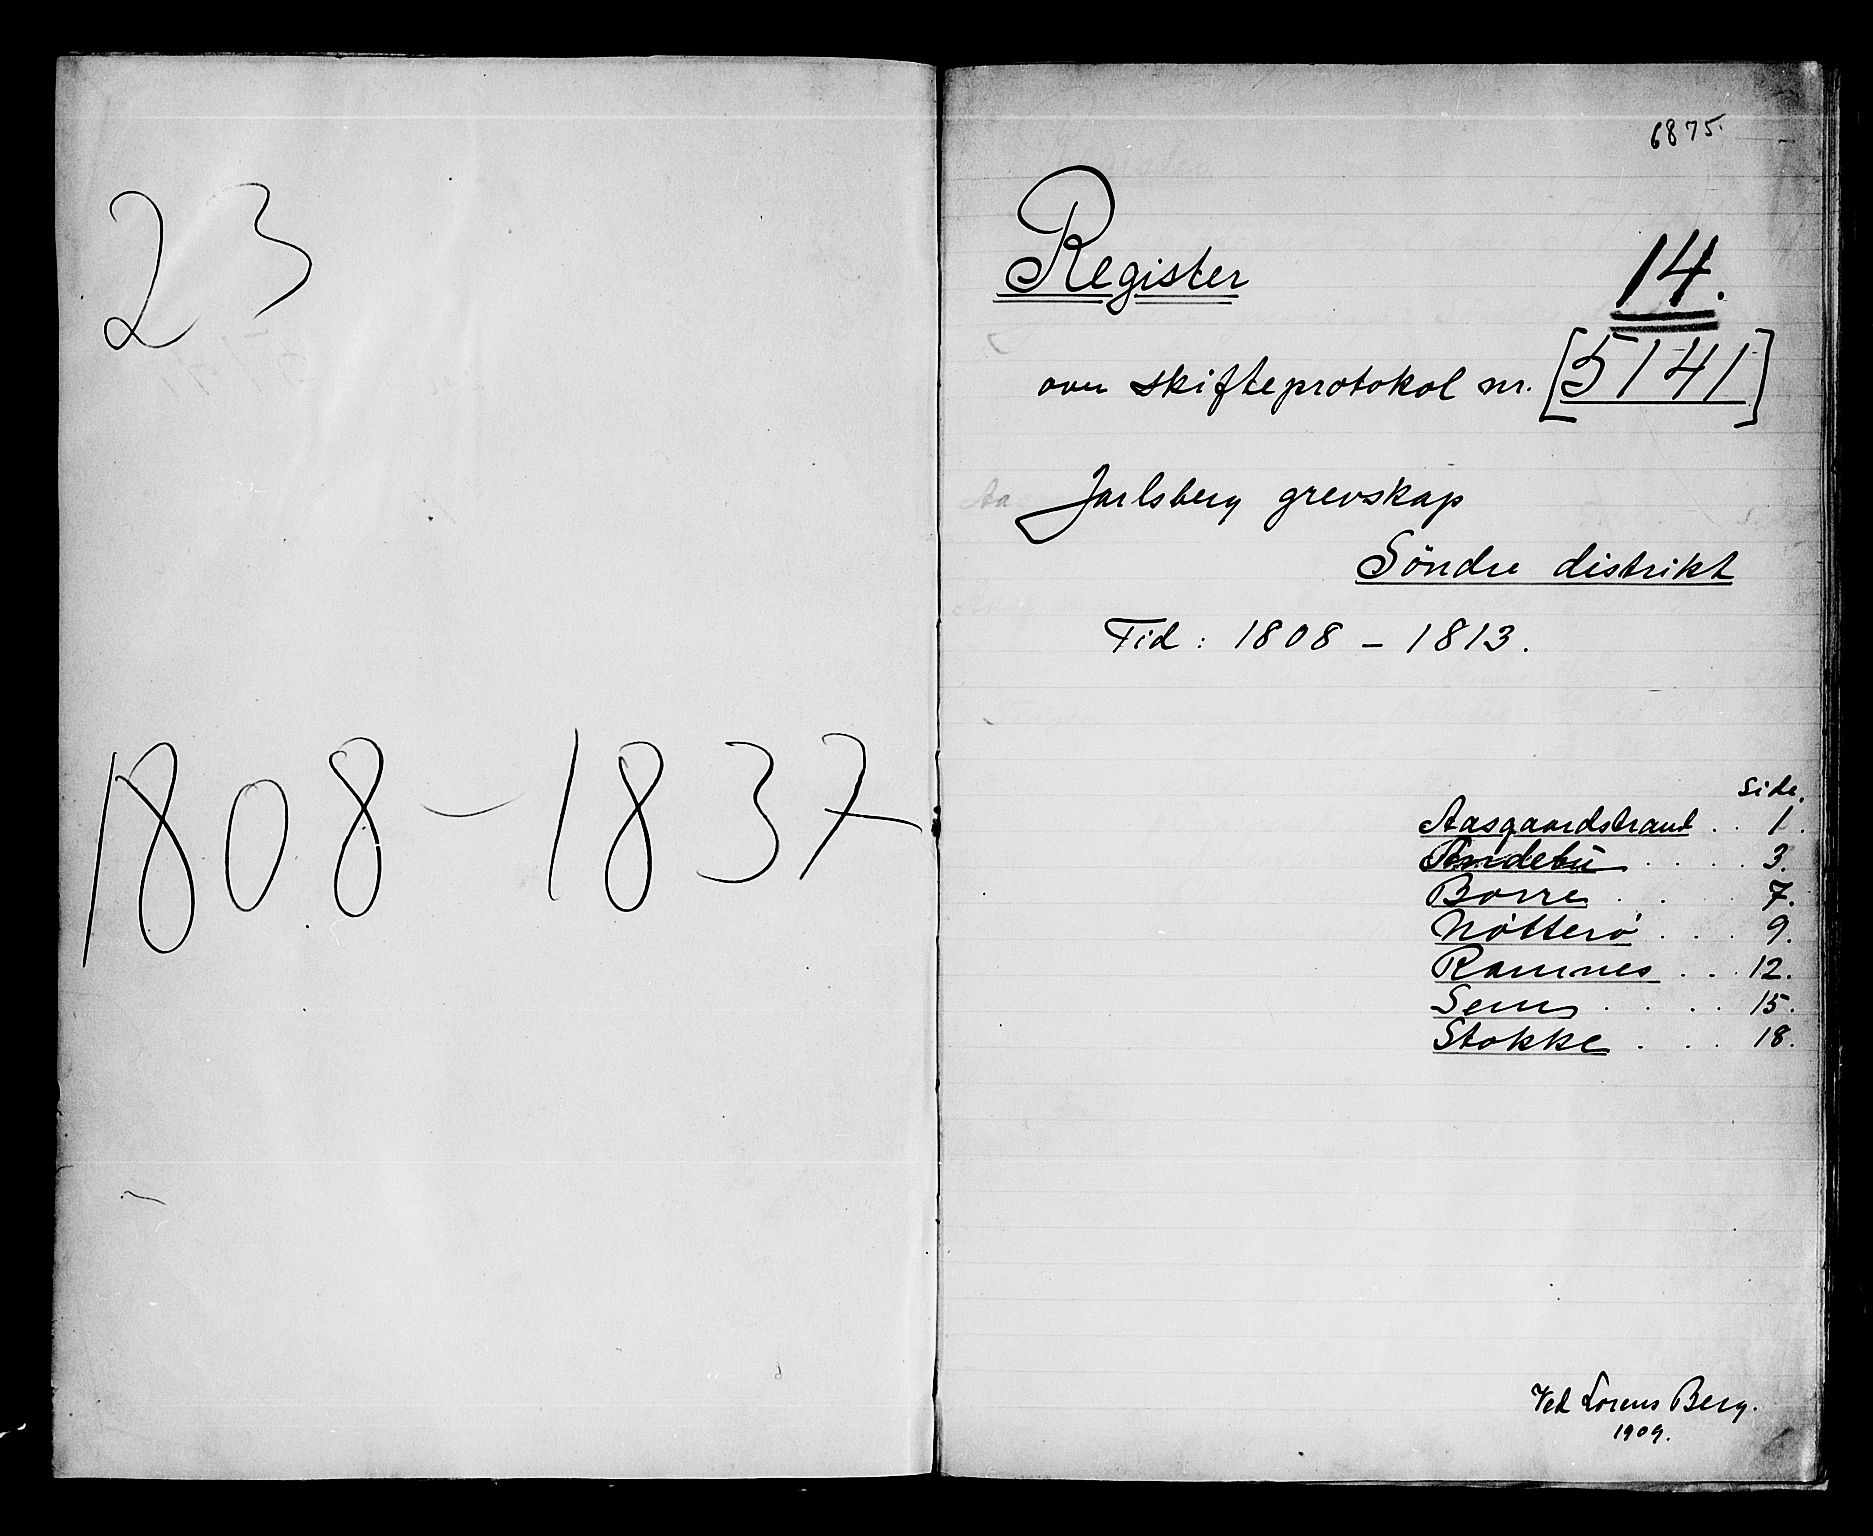 23
1808 - 1837
6875.
Register
14.
over skifteprotokol nr. [5141]
Jarlsberg grevskap
Söndre distrikt
Tid: 1808 - 1813.
Side.
Aasgaardstrand . . 1.
Andebu . . . . 3.
Borre . . . . 7.
Nötterö . . . 9.
Ramnes . . . 12.
Sem . . . . 15.
Stokke . . . 18.
Ved Lorens Berg.
1909.